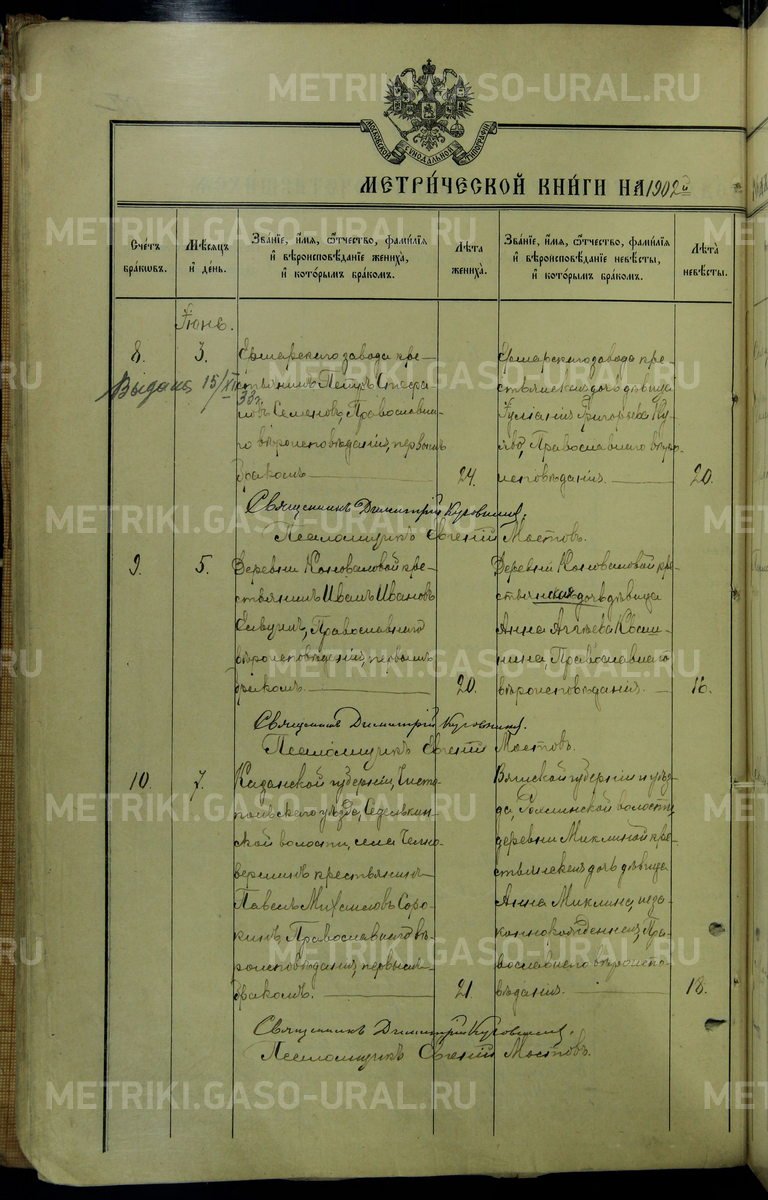 METRIKI.GASO-URAL.RU
МОСКОВСКОЙ СѴНОДАЛЬНОЙ ТИПОГРАФІИ
МЕТРИ́ЧЕСКОЙ КНИ́ГИ НА 1902й
Сче́тъ бра́кѡвъ.
Мѣ́сяцъ и҆ де́нь.
Зва́нїе, и҆́мя, ѻ҆́тчество, фами́лїя и҆ вѣроисповѣ́данїе жениха̀, и҆ кото́рымъ бра́комъ.
Лѣ́та жениха̀.
Зва́нїе, и҆́мя, ѻ҆́тчество, фами́лїя и҆ вѣроисповѣ́данїе невѣ́сты, и҆ кото́рымъ бра́комъ.
Лѣ́та невѣ́сты.
Іюнь.
8.
3.
Выдана 15/XII 33г.
завода кре-
стьянинъ Петръ
Семеновъ, Православна-
го вѣроисповѣданія, первымъ
бракомъ
24.
завода кре-
стьянская дочь дѣвица
Григорьева
Православнаго вѣро-
исповѣданія.
20.
Священникъ Димитрій
Псаломщикъ Евгеній Мостовъ.
9.
5.
Деревни Коноваловой кре-
стьянинъ Иванъ Ивановъ
Православнаго
вѣроисповѣданія, первымъ
бракомъ.
20.
Деревни Коноваловой кре-
стьянская дочь дѣвица
Анна
Православнаго
вѣроисповѣданія.
16.
Священникъ Димитрій
Псаломщикъ Евгеній Мостовъ.
10.
7.
Казанской губерніи, Чисто-
польскаго уѣзда,
ской волости, села
крестьянинъ
Павелъ Михаиловъ Соро-
кинъ, Православнаго вѣ-
роисповѣданія, первымъ
бракомъ.
21
Вятской губерніи и уѣз-
да, волости,
деревни Миклиной кре-
стьянская дочь дѣвица
Анна Миклина, неза-
коннорожденная, Пра-
вославнаго вѣроиспо-
вѣданія.
18.
Священникъ Димитрій
Псаломщикъ Евгеній Мостовъ.